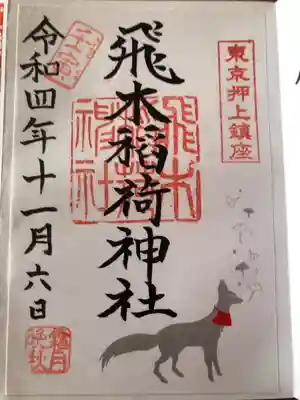 東京押上鎮座
飛木稲荷神社
飛木
稲荷
神社
令和四年十一月六日